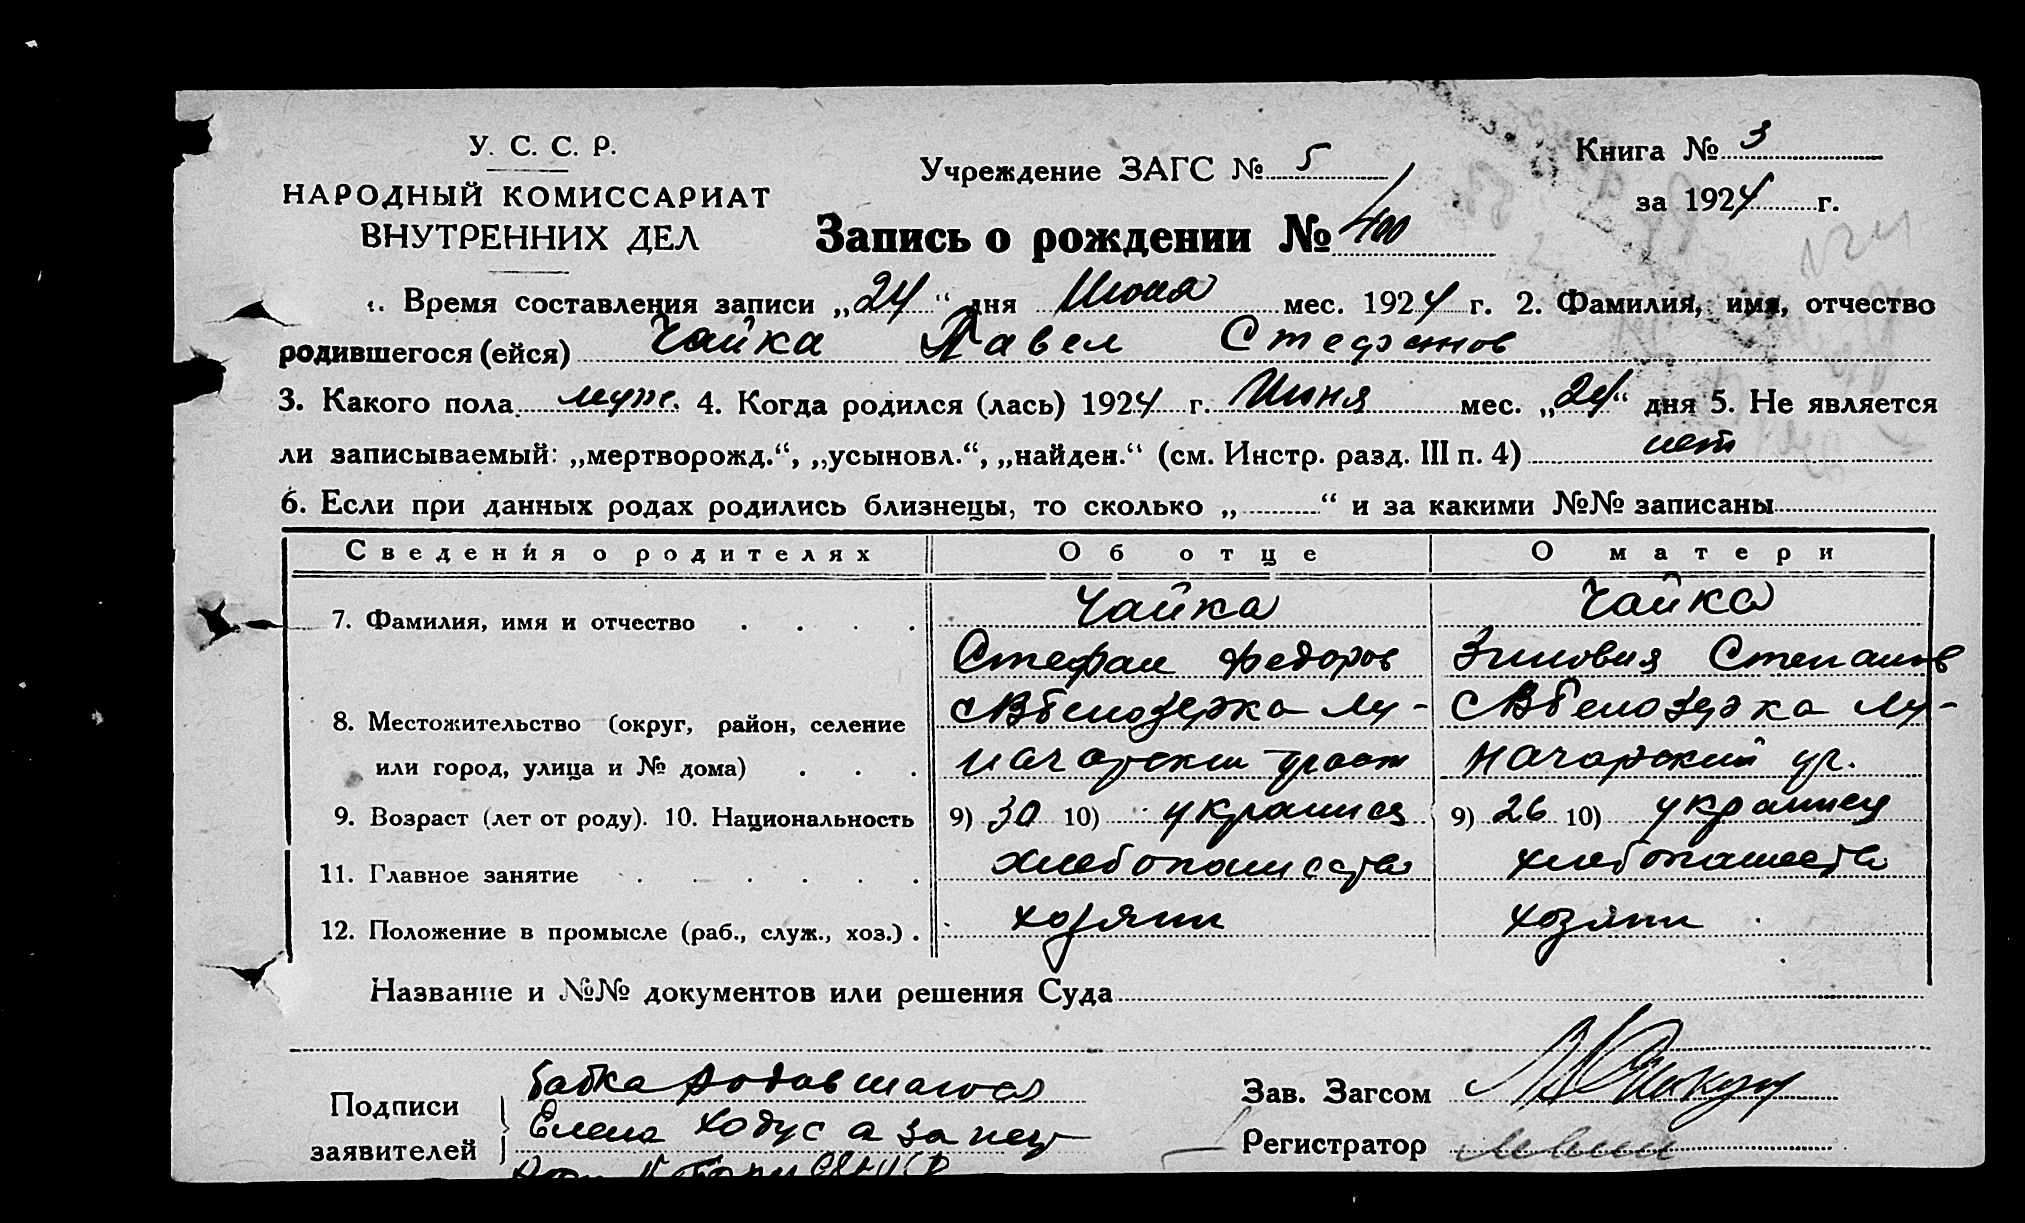 У. С. С. Р.
НАРОДНЫЙ КОМИССАРИАТ
ВНУТРЕННИХ ДЕЛ
Учреждение ЗАГС № 5
Книга № 3
за 1924 г.
Запись о рождении № 400
1. Время составления записи „24“ дня Июня мес. 1924 г. 2. Фамилия, имя, отчество
родившегося (ейся) Чайка Павел Стефанов
3. Какого пола муж. 4. Когда родился (лась) 1924 г. Июня мес. „24“ дня 5. Не является
ли записываемый: „мертворожд.“, „усыновл.“, „найден.“ (см. Инстр. разд. III п. 4) нет
6. Если при данных родах родились близнецы, то сколько „ “ и за какими №№ записаны
Сведения о родителях Об отце О матери
7. Фамилия, имя и отчество Чайка Чайка
Стефан Федоров Зиновия Степанов
8. Местожительство (округ, район, селение СВ белозерка Лу- СВ белозерка Лу-
или город, улица и № дома) начарский начарский ур.
9. Возраст (лет от роду). 10. Национальность 9) 30 10) украинец 9) 26 10) украинец
11. Главное занятие хлебопашества хлебопашества
12. Положение в промысле (раб., служ., хоз.) хозяин хозяин
Название и №№ документов или решения Суда
Подписи
заявителей
бабка родавшагося
Елена Ходус а за нец
Зав. Загсом
Регистратор